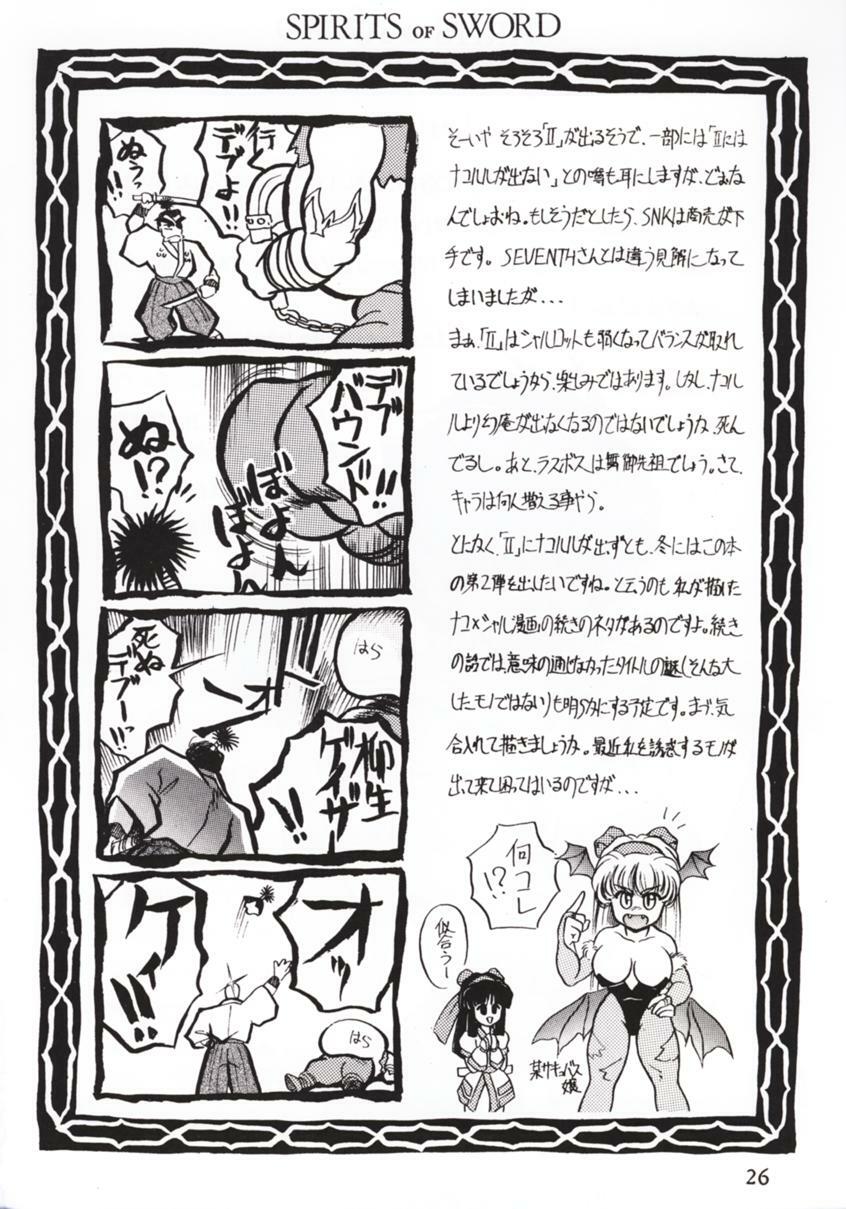 SPIRITS OF SWORD
行くデブよ
ぬうっ!!
デブバウンド!!
ぼよんぼよん
ぬ!?
はら
柳生ゲイザー!!
死ねデブー!!
オッ
ケイ!!
はら
そーいや そろそろ「II」が出るそうで、一部には「IIには
ナコルルが出ない」との噂も耳にしますが、どぉな
んでしょおね。もしそうだとしたら、SNKは商売が下
手です。SEVENTHさんとは違う見解になって
しまいましたが...
まぁ、「II」はシャルロットも弱くなってバランスが取れ
ているでしょうから、楽しみではあります。しかし、ナコル
ルより幻庵が出なくなるのではないでしょうか、死ん
でるし。あと、ラスボスは舞御先祖でしょう。さて、
キャラは何人増える事やら。
とにかく、「II」にナコルルが出ずとも、冬にはこの本
の第2弾を出したいですね。と云うのも 私が描いた
ナコ×シャル漫画の続きのネタがあるのですよ。続き
の話では、意味の通じなかったタイトルの謎(そんな大
したモノではない)も明らかにする予定です。まァ、気
合入れて描きましょうか。最近私を誘惑するモノが
出て来て困ってはいるのですが...
何コレ!?
似合うー
某サキュバス嬢
26